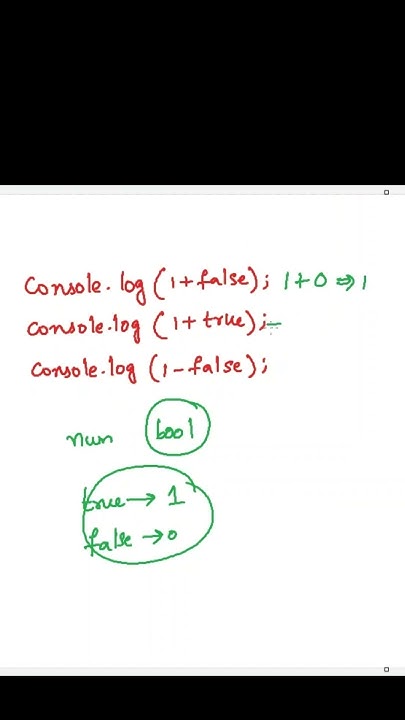 Console.log (1+false); 1+0 ⇒ 1
console.log (1+true);–
console.log (1-false);
num bool
true → 1
false → 0